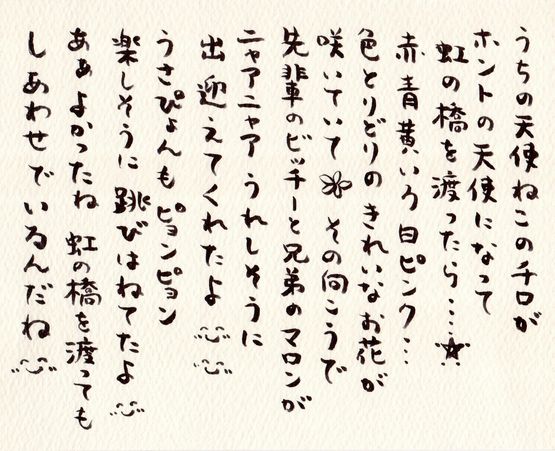 うちの天使ねこのチロが
ホントの天使になって
虹の橋を渡ったら…☆
赤青黄いろ白ピンク…
色とりどりのきれいなお花が
咲いていて その向こうで
先輩のビッチーと兄弟のマロンが
ニャアニャアうれしそうに
出迎えてくれたよ
うさぴょんもピョンピョン
楽しそうに跳びはねてたよ
あぁよかったね 虹の橋を渡っても
しあわせでいるんだね